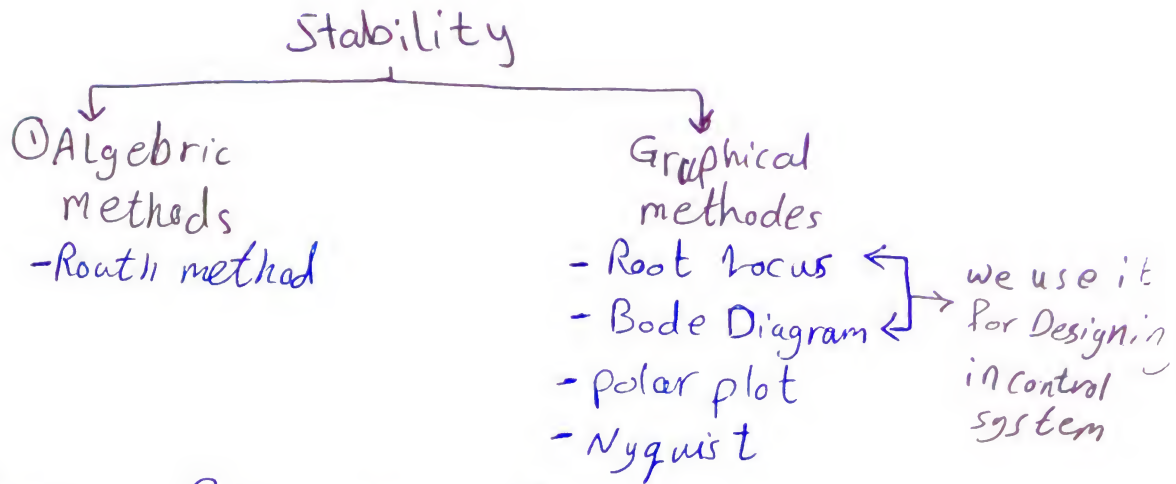 Stability
①Algebric
methods
-Routh method
Graphical
methodes
- Root Locus
- Bode Diagram
- polar plot
- Nyquist
we use it
for Designing
in control
system